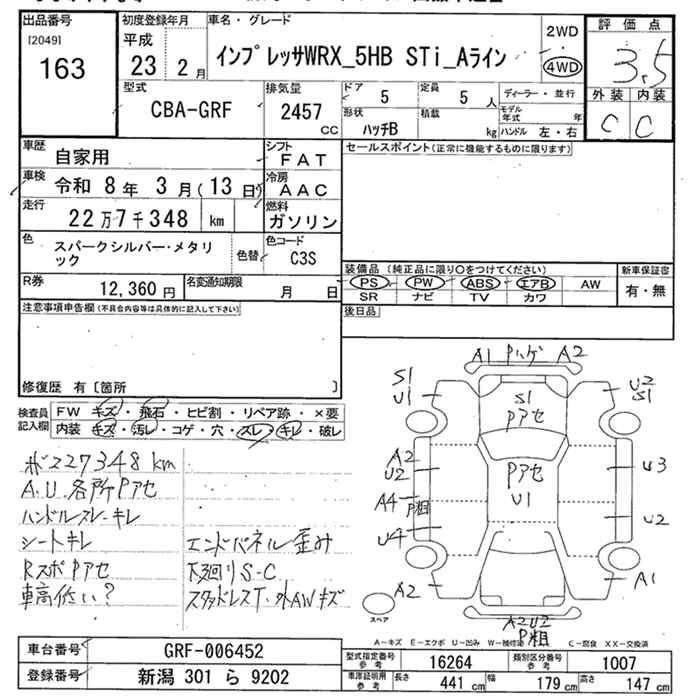 出品番号
[2049]
163
初度登録年月
平成
23 2 月
車名・グレード
インプレッサWRX_5HB STi_Aライン
2WD
4WD
評価点
3.5
外装 内装
C C
型式
CBA-GRF
排気量
2457
cc
ドア 5
定員 5 人
ディーラー・並行
形状 ハッチB
積載 kg
モデル年式 年
ハンドル 左・右
車歴 自家用
シフト FAT
車検 令和 8年 3月(13日)
冷房 AAC
走行 22万7千348 km
燃料 ガソリン
色 スパークシルバー・メタリック
色替
色コード C3S
R券 12,360 円
名変通知期限 月 日
セールスポイント(正常に機能するものに限ります)
装備品 (純正品に限り○をつけてください)
新車保証書
PS PW ABS エアB AW
有・無
SR ナビ TV カワ
後日品
注意事項申告欄(不具合内容等は具体的に記入して下さい)
修復歴 有〔箇所 〕
検査員記入欄
FW キズ・飛石・ヒビ割・リペア跡・×要
内装・キズ・汚レ・コゲ・穴・スレ・キレ・破レ
227348 km
A.U.各所Pアセ
ハンドルスレ・キレ
シートキレ
RスポPアセ
車高低い?
エンドパネル歪み
下廻りS-C
スタッドレスT・外AWキズ
A1 Pハゲ A2
S1
U1
S1
Pアセ
U2
S1
A2
U2
Pアセ
U1
U3
A4 P粗
U4
U2
A2
A1
A2U2
P粗
スペア
A-キズ E-エクボ U-凹み W-補修跡 C-腐食 XX-交換済
車台番号 GRF-006452
型式指定番号 参考 16264
類別区分番号 参考 1007
登録番号 新潟 301 ら 9202
車庫証明用 参考 長さ 441 cm 幅 179 cm 高さ 147 cm